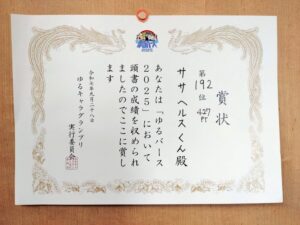 賞状
第192位 427Pt
ササ ヘルスくん殿
あなたは「ゆるバース
2025」において
頭書の成績を収められ
ましたのでここに賞し
ます
令和七年九月二十八日
ゆるキャラグランプリ
実行委員会